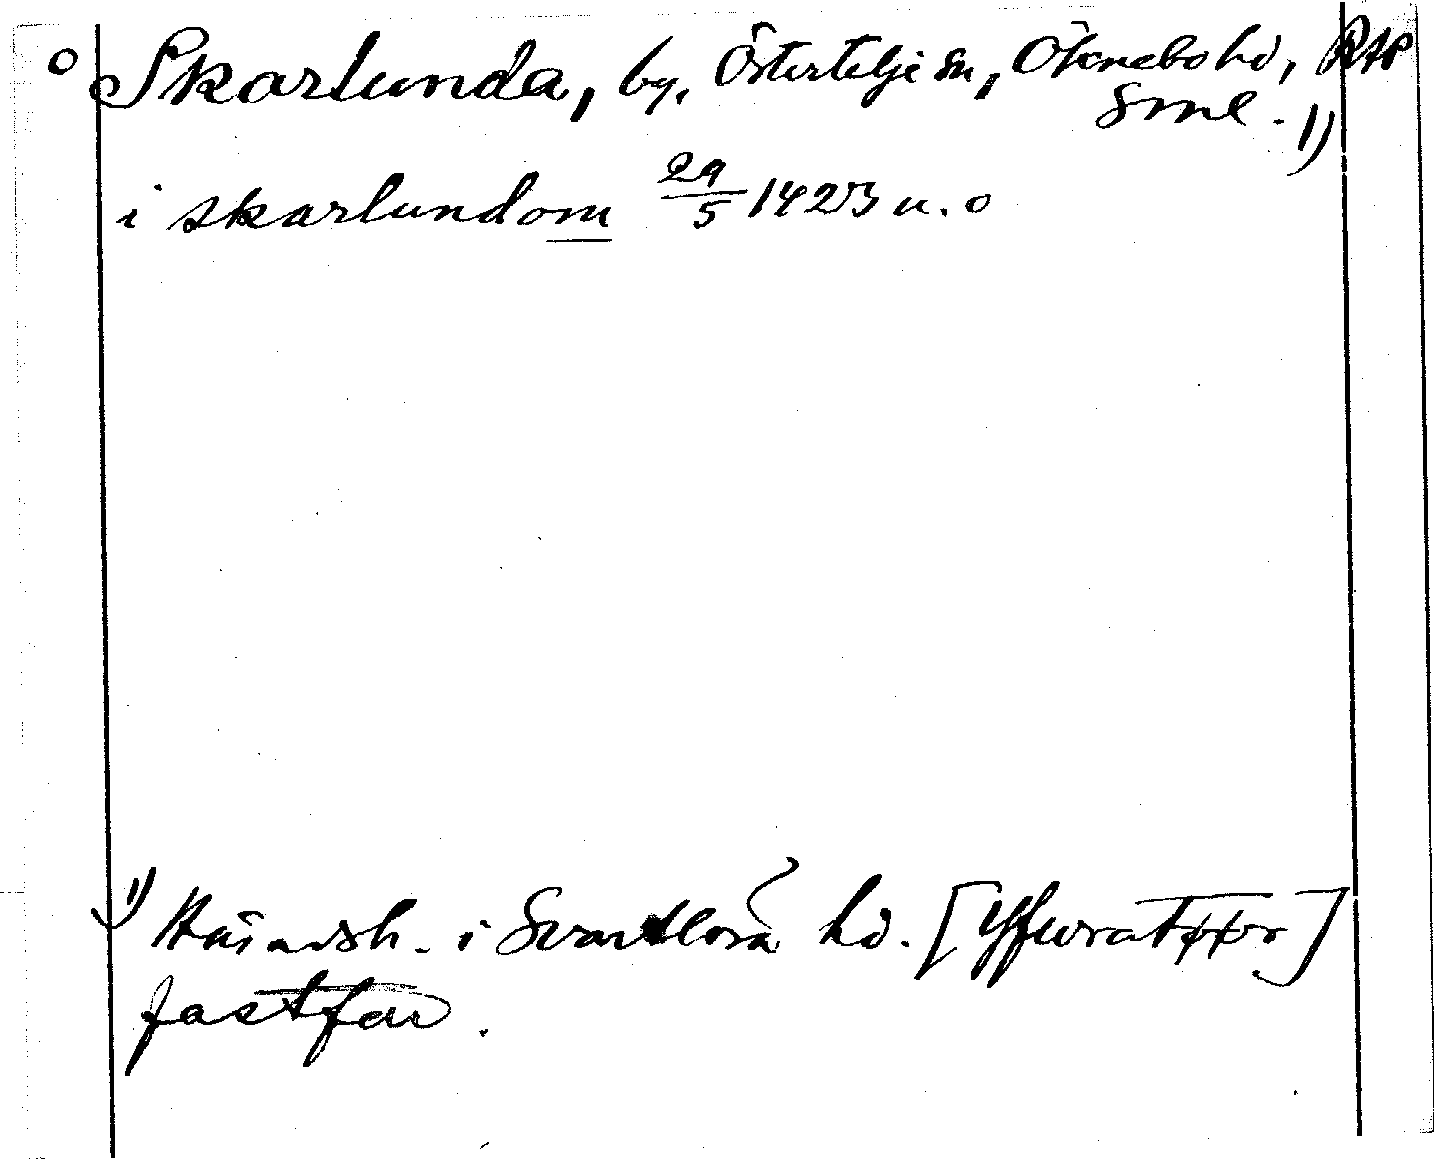 Skarlunda, by, Östertelje sn, Öknebo hd, RAP
Sml. 1)
i skarlundom 29/5 1423 u. o
1) Häradsh. i Svartlösa hd. [ffwratxxr]
fastfar.